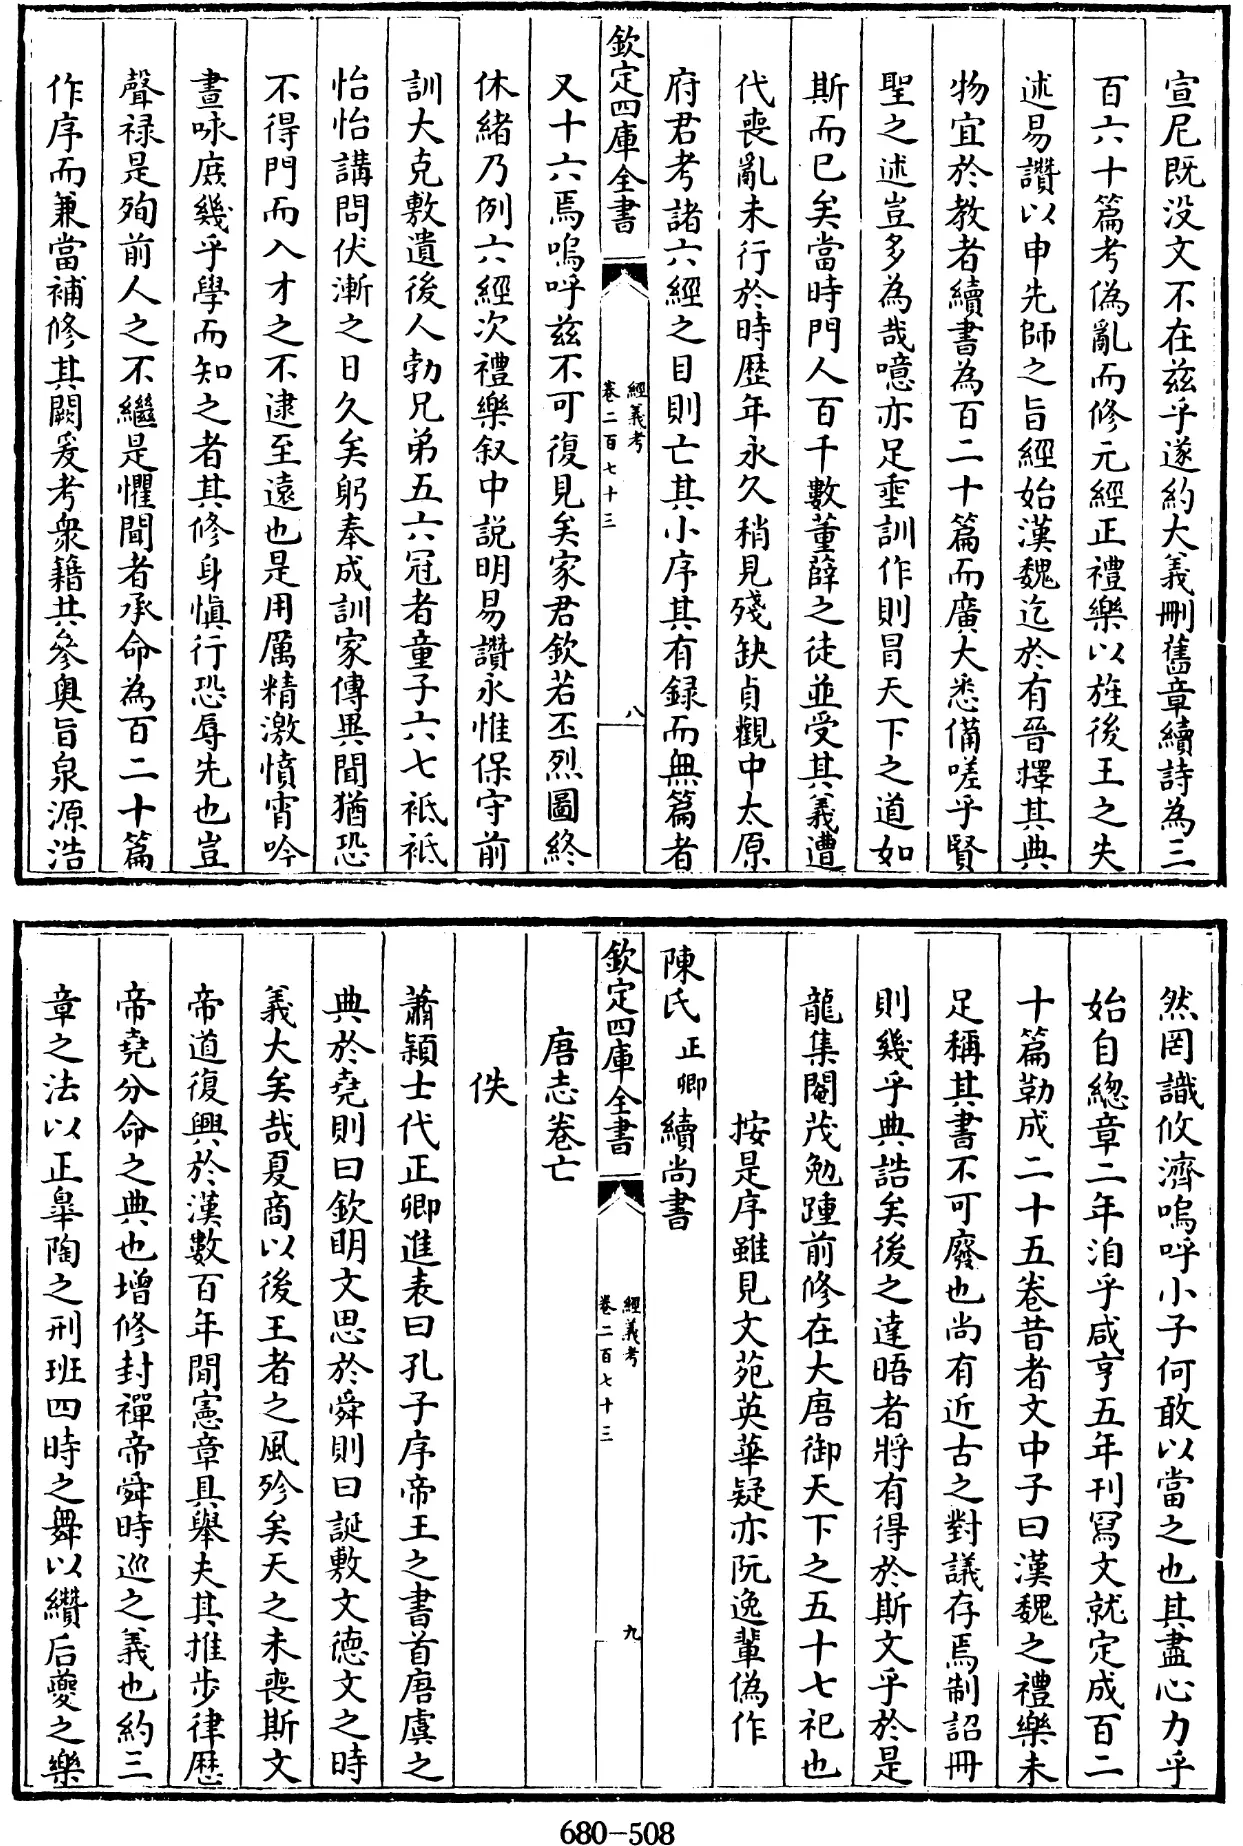 宣尼既没文不在兹乎遂約大義刪舊章續詩為三
百六十篇考偽亂而修元經正禮樂以旌後王之失
述易讚以申先師之旨經始漢魏迄於有晉擇其典
物宜於教者續書為百二十篇而廣大悉備嗟乎賢
聖之述豈多為哉噫亦足垂訓作則冒天下之道如
斯而已矣當時門人百千數董薛之徒並受其義遭
代喪亂未行於時歷年永久稍見殘缺貞觀中太原
府君考諸六經之目則亡其小序其有録而無篇者
欽定四庫全書
經義考
卷二百七十三
八
又十六焉嗚呼兹不可復見矣家君欽若丕烈圖終
休緒乃例六經次禮樂叙中説明易讚永惟保守前
訓大克敷遺後人勃兄弟五六冠者童子六七祗祗
怡怡講問伏漸之日久矣躬奉成訓家傳異聞猶恐
不得門而入才之不逮至遠也是用厲精激憤宵吟
晝咏庶幾乎學而知之者其修身慎行恐辱先也豈
聲禄是殉前人之不繼是懼聞者承命為百二十篇
作序而兼當補修其闕爰考衆籍共參奥旨泉源浩
然罔識攸濟嗚呼小子何敢以當之也其盡心力乎
始自總章二年洎乎咸亨五年刊寫文就定成百二
十篇勒成二十五卷昔者文中子曰漢魏之禮樂未
足稱其書不可廢也尚有近古之對議存焉制詔冊
則幾乎典誥矣後之達晤者將有得於斯文乎於是
龍集閹茂勉踵前修在大唐御天下之五十七祀也
按是序雖見文苑英華疑亦阮逸輩偽作
陳氏正卿續尚書
欽定四庫全書
經義考
卷二百七十三
九
唐志卷亡
佚
蕭穎士代正卿進表曰孔子序帝王之書首唐虞之
典於堯則曰欽明文思於舜則曰誕敷文德文之時
義大矣哉夏商以後王者之風殄矣天之未喪斯文
帝道復興於漢數百年間憲章具舉夫其推步律歷
帝堯分命之典也增修封禪帝舜時巡之義也約三
章之法以正臯陶之刑班四時之舞以纘后夔之樂
680-508